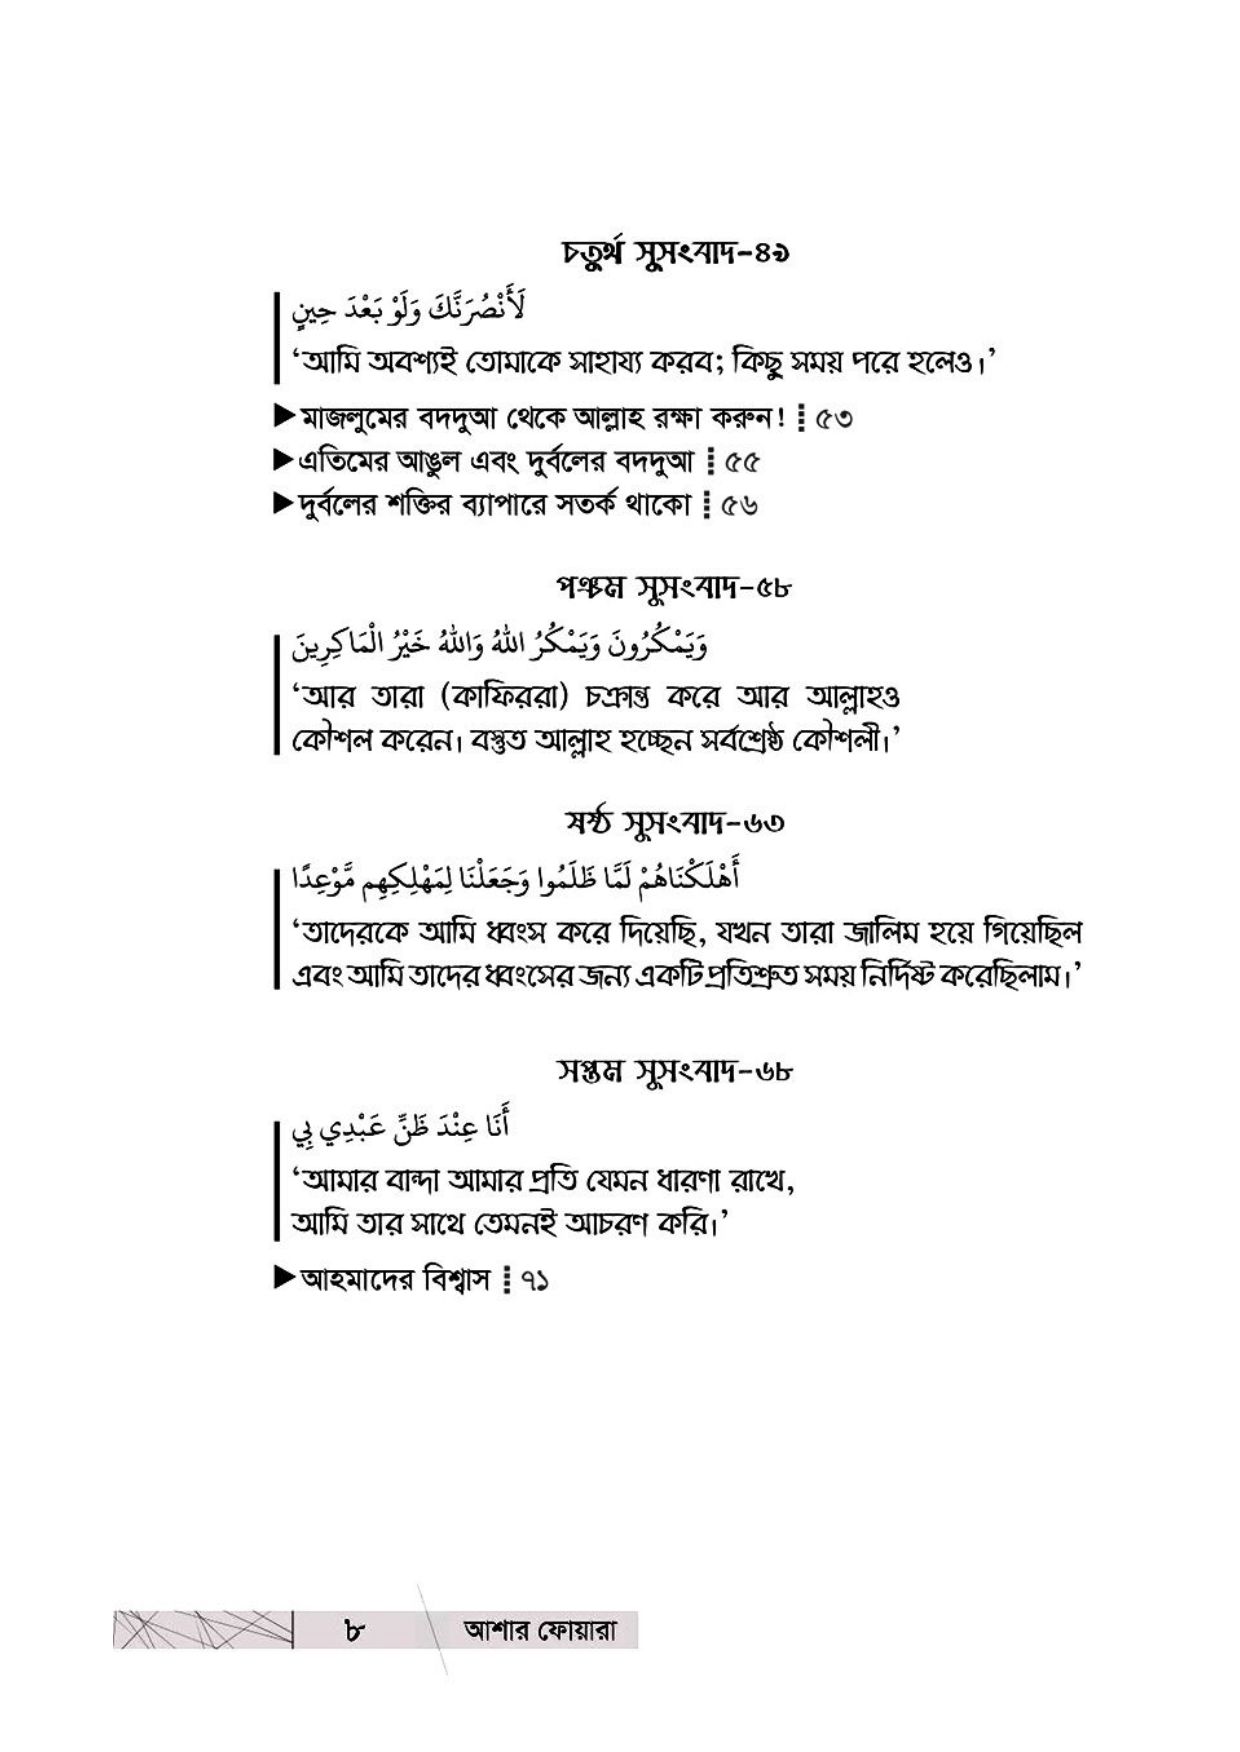 চতুর্থ সুসংবাদ-৪৯
لَأَنْصُرَنَّكَ وَلَوْ بَعْدَ حِينٍ
‘আমি অবশ্যই তোমাকে সাহায্য করব; কিছু সময় পরে হলেও।’
▶ মাজলুমের বদদুআ থেকে আল্লাহ রক্ষা করুন! ⁞ ৫৩
▶ এতিমের আঙুল এবং দুর্বলের বদদুআ ⁞ ৫৫
▶ দুর্বলের শক্তির ব্যাপারে সতর্ক থাকো ⁞ ৫৬
পঞ্চম সুসংবাদ-৫৮
وَيَمْكُرُونَ وَيَمْكُرُ اللهُ وَاللهُ خَيْرُ الْمَاكِرِينَ
‘আর তারা (কাফিররা) চক্রান্ত করে আর আল্লাহও
কৌশল করেন। বস্তুত আল্লাহ হচ্ছেন সর্বশ্রেষ্ঠ কৌশলী।’
ষষ্ঠ সুসংবাদ-৬৩
أَهْلَكْنَاهُمْ لَمَّا ظَلَمُوا وَجَعَلْنَا لِمَهْلِكِهِم مَّوْعِدًا
‘তাদেরকে আমি ধ্বংস করে দিয়েছি, যখন তারা জালিম হয়ে গিয়েছিল
এবং আমি তাদের ধ্বংসের জন্য একটি প্রতিশ্রুত সময় নির্দিষ্ট করেছিলাম।’
সপ্তম সুসংবাদ-৬৮
أَنَا عِنْدَ ظَنِّ عَبْدِي بِي
‘আমার বান্দা আমার প্রতি যেমন ধারণা রাখে,
আমি তার সাথে তেমনই আচরণ করি।’
▶ আহমাদের বিশ্বাস ⁞ ৭১
৮ আশার ফোয়ারা